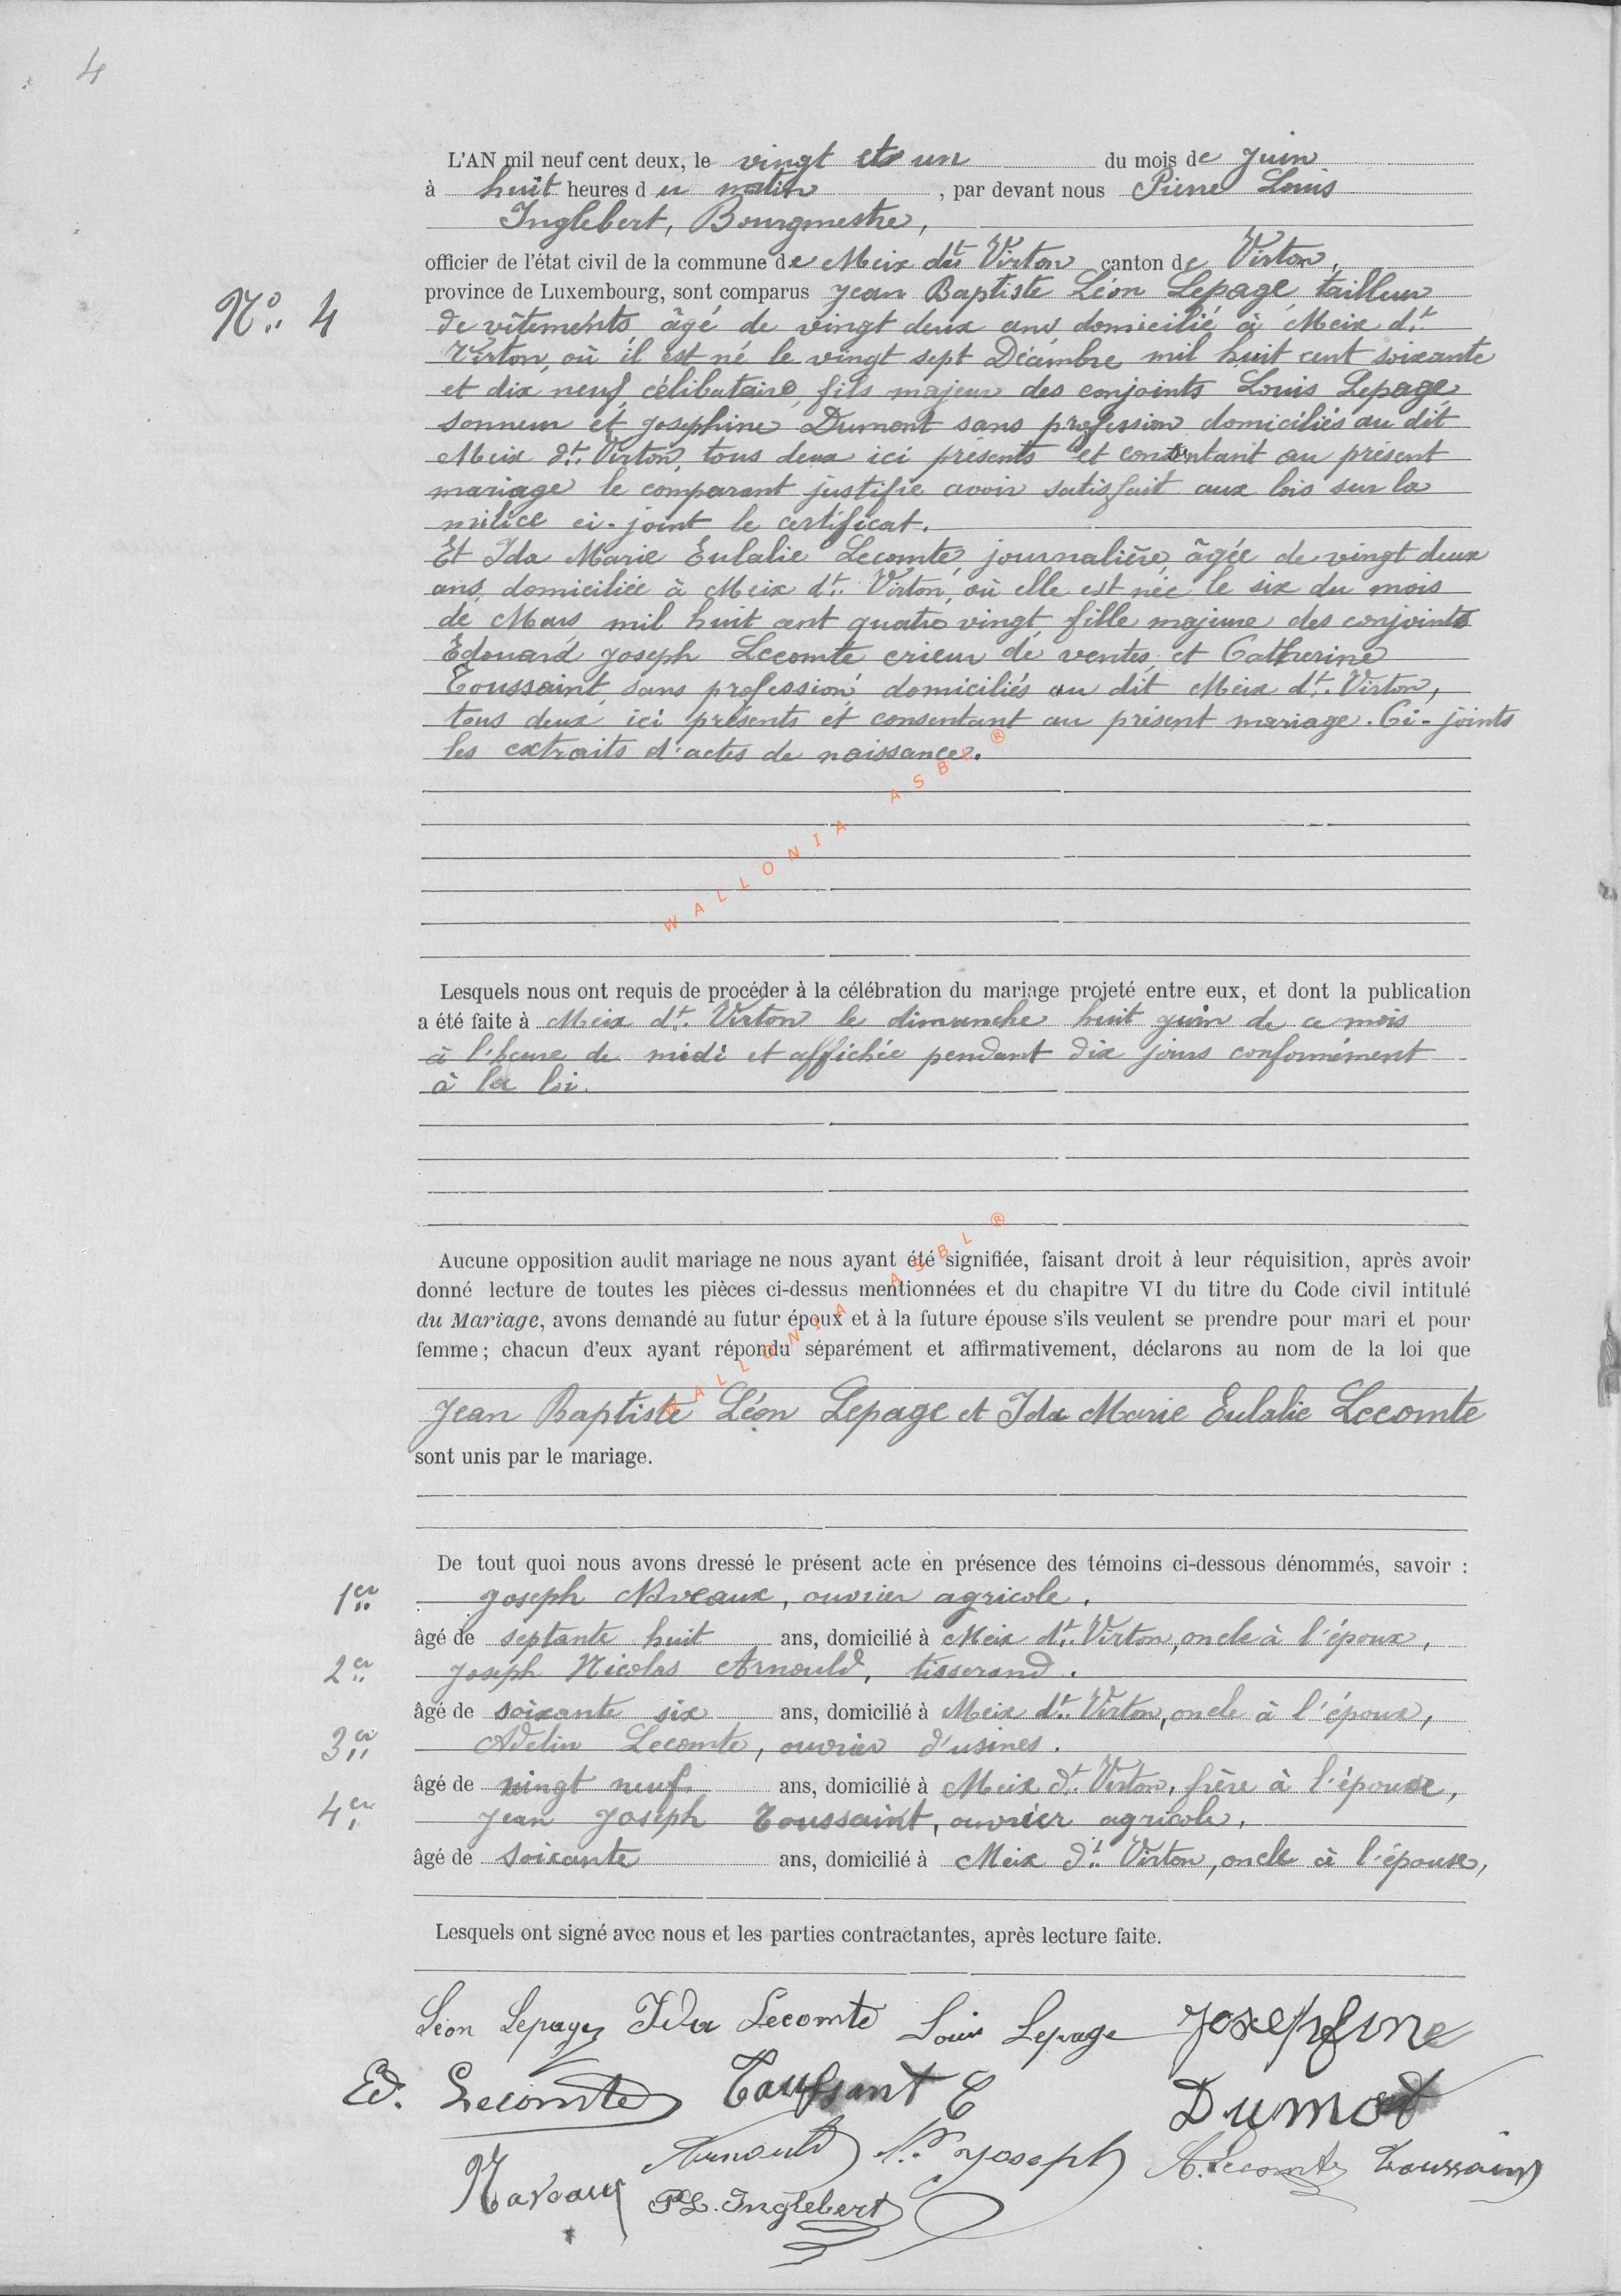 4
L'AN mil neuf cent deux, le vingt et un du mois de Juin
à huit heures du matin, par devant nous Pierre Louis
Inglebert, Bourgmestre,
officier de l'état civil de la commune de Meix dt Virton canton de Virton,
province de Luxembourg, sont comparus Jean Baptiste Léon Lepage, tailleur
No 4
de vêtements âgé de vingt deux ans, domicilié à Meix dt
Virton, où il est né le vingt sept Décembre mil huit cent soixante
et dix neuf, célibataire, fils majeur des conjoints Louis Lepage,
sonneur et Josephine Dumont sans profession domiciliés au dit
Meix dt Virton, tous deux ici présents et consentant au présent
mariage le comparant justifie avoir satisfait aux lois sur la
milice ci-joint le certificat.
Et Ida Marie Eulalie Lecomte, journalière, âgée de vingt deux
ans, domiciliée à Meix dt Virton, où elle est née le six du mois
de Mars mil huit cent quatre vingt, fille majeure des conjoints
Edouard Joseph Lecomte crieur de ventes, et Catherine
Toussaint, sans profession, domiciliés au dit Meix dt Virton,
tous deux ici présents et consentant au présent mariage. Ci-joints
les extraits d'actes de naissance.
WALLONIA ASBL ®
Lesquels nous ont requis de procéder à la célébration du mariage projeté entre eux, et dont la publication
a été faite à Meix dt Virton le dimanche huit juin de ce mois
à l'heure de midi et affichée pendant dix jours conformément
à la loi.
WALLONIA ASBL ®
Aucune opposition audit mariage ne nous ayant été signifiée, faisant droit à leur réquisition, après avoir
donné lecture de toutes les pièces ci-dessus mentionnées et du chapitre VI du titre du Code civil intitulé
du Mariage, avons demandé au futur époux et à la future épouse s'ils veulent se prendre pour mari et pour
femme ; chacun d'eux ayant répondu séparément et affirmativement, déclarons au nom de la loi que
Jean Baptiste Léon Lepage et Ida Marie Eulalie Lecomte
sont unis par le mariage.
De tout quoi nous avons dressé le présent acte en présence des témoins ci-dessous dénommés, savoir :
1er Joseph Naveaux, ouvrier agricole.
âgé de septante huit ans, domicilié à Meix dt Virton, oncle à l'époux,
2er Joseph Nicolas Arnould, tisserand.
âgé de soixante six ans, domicilié à Meix dt Virton, oncle à l'époux,
3er Adelin Lecomte, ouvrier d'usines.
âgé de vingt neuf ans, domicilié à Meix dt Virton, frère à l'épouse,
4er Jean Joseph Toussaint, ouvrier agricole,
âgé de soixante ans, domicilié à Meix dt Virton, oncle à l'épouse,
Lesquels ont signé avec nous et les parties contractantes, après lecture faite.
Léon Lepage Ida Lecomte Louis Lepage Josephine
Ed. Lecomte Toussant C Dumot
Arnould Nas Joseph A. Lecomte Toussaint
Naveaux P.L. Inglebert